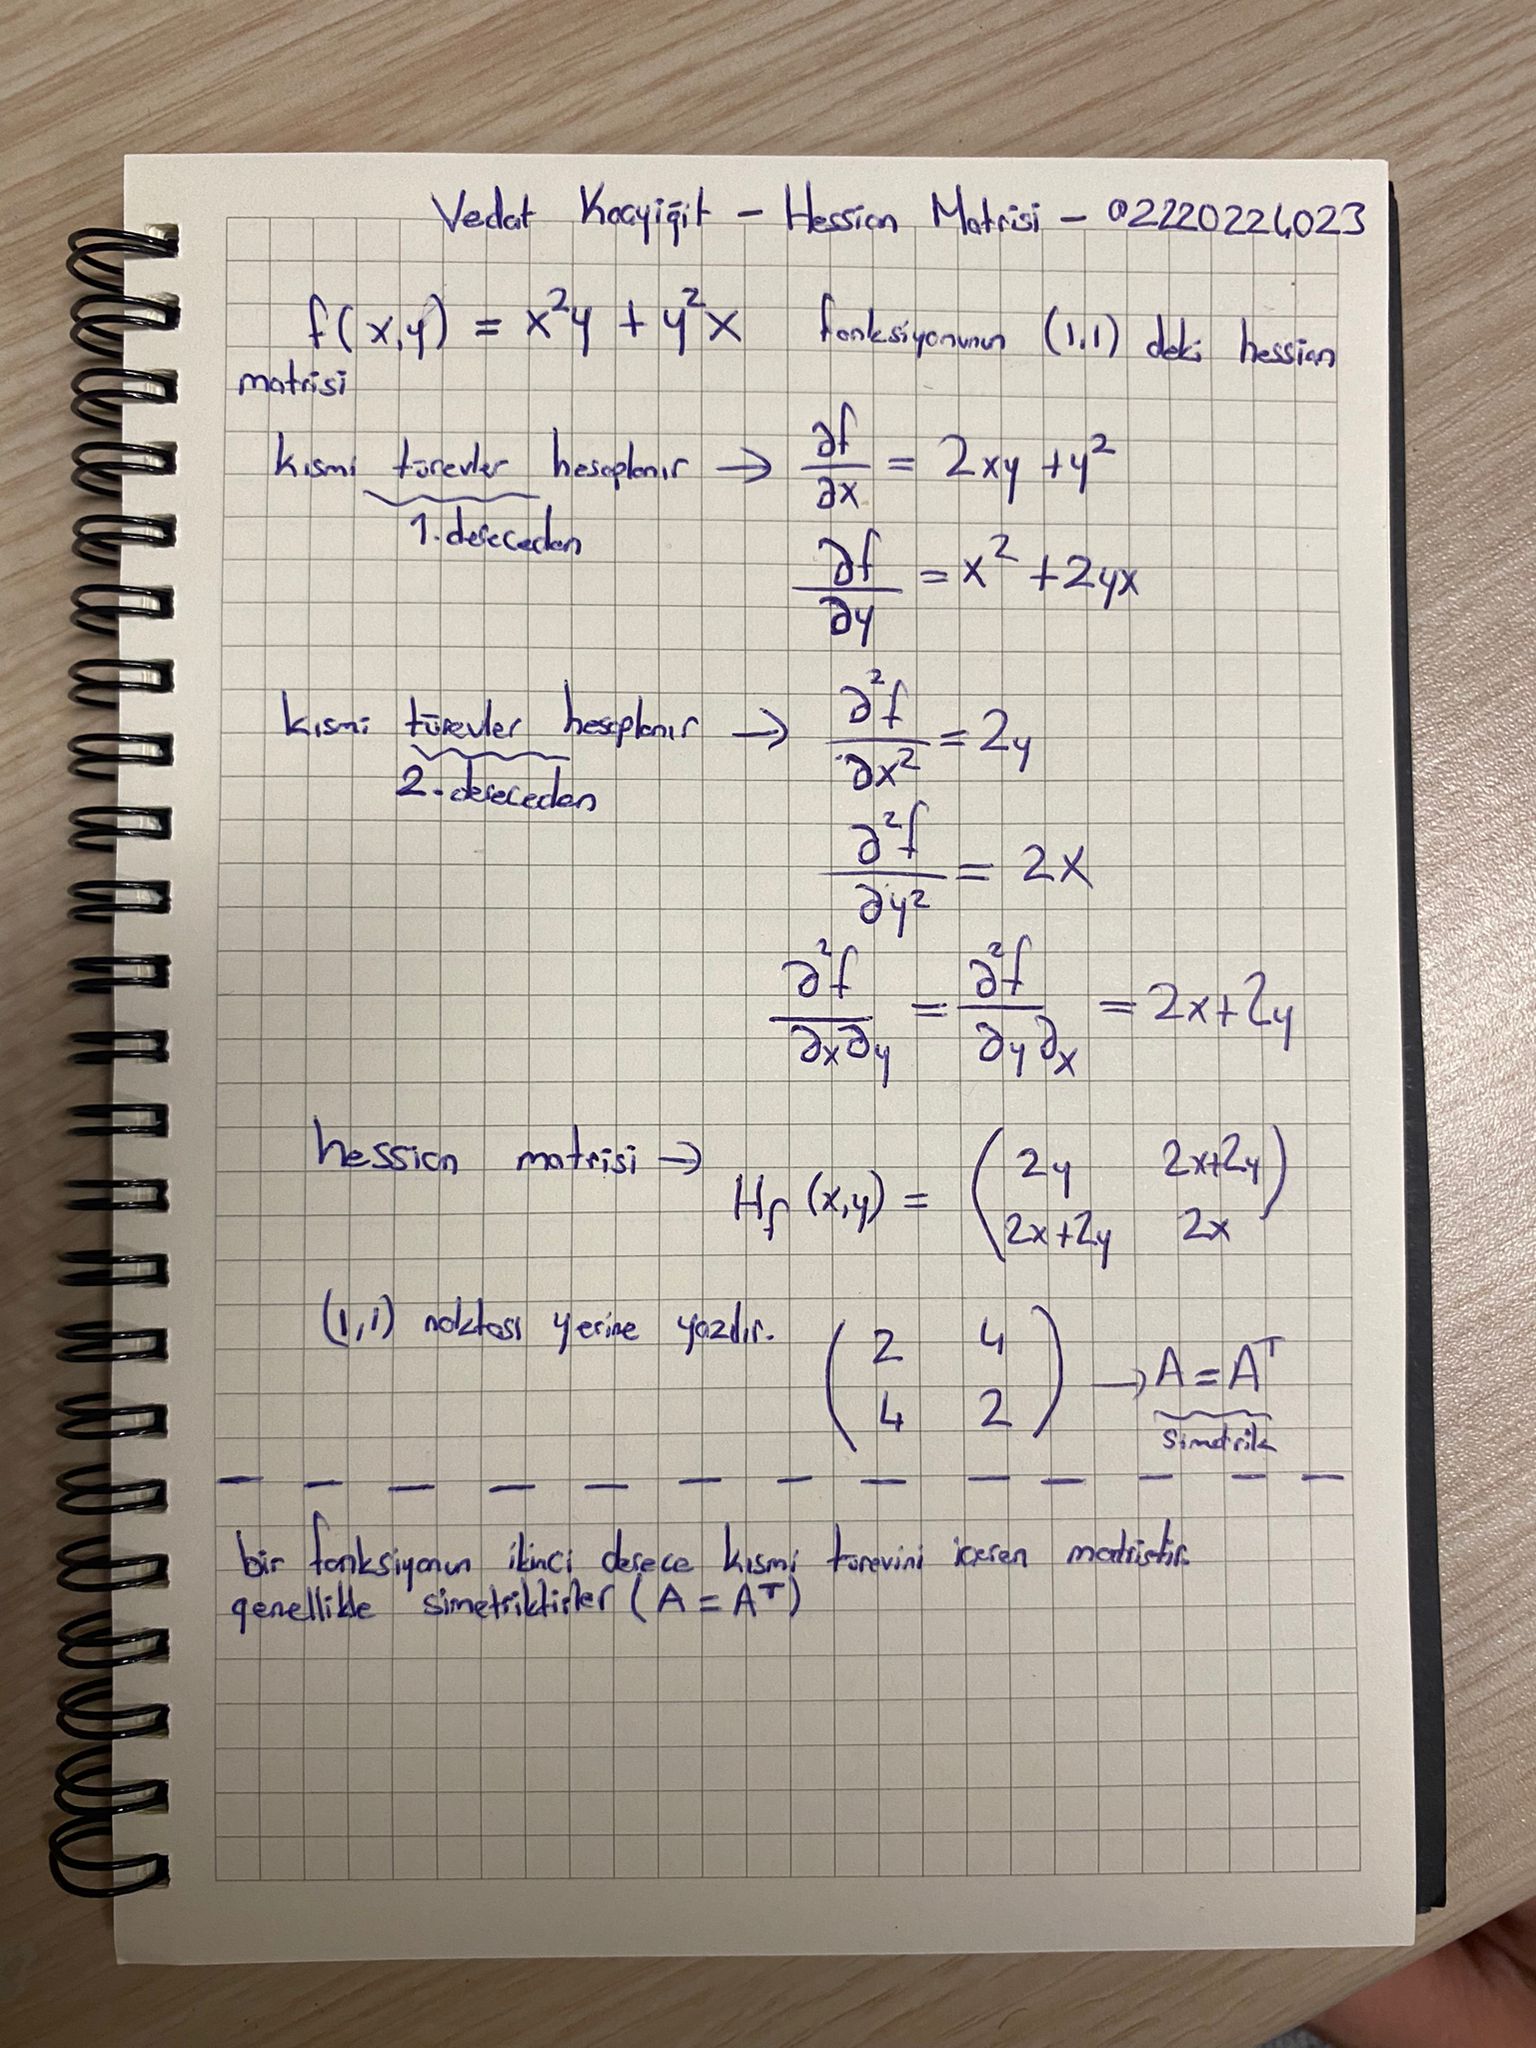 Vedat Koçyiğit - Hessian Matrisi - 02220224023
f(x,y) = x²y + y²x fonksiyonunun (1,1) deki hessian
matrisi
kısmi türevler hesaplanır → ∂f/∂x = 2xy + y²
1. dereceden
∂f/∂y = x² + 2yx
kısmi türevler hesaplanır → ∂²f/∂x² = 2y
2. dereceden
∂²f/∂y² = 2x
∂²f/∂x∂y = ∂²f/∂y∂x = 2x+2y
hessian matrisi → H_f (x,y) = ( 2y 2x+2y
2x+2y 2x )
(1,1) noktası yerine yazılır. ( 2 4
4 2 ) → A = Aᵀ
simetrik
bir fonksiyonun ikinci derece kısmi türevini içeren matristir.
genellikle simetriktirler (A = Aᵀ)